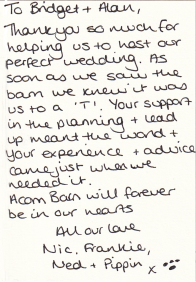 To Bridget + Alan,
Thankyou so much for
helping us to host our
perfect wedding. As
soon as we saw the
barn we knew it was
us to a 'T'. Your support
in the planning + lead
up meant the world +
your experience + advice
came just when we
needed it.
Acorn Barn will forever
be in our hearts
All our love
Nic, Frankie,
Ned + Pippin x